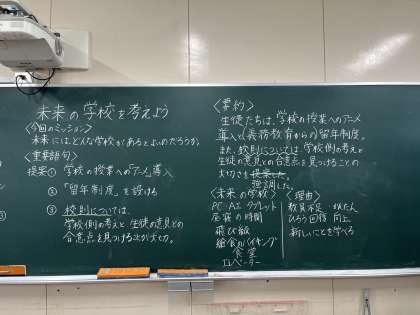 未来の学校を考えよう
〈今回のミッション〉
未来には、どんな学校があるとよいのだろうか。
〈重要語句〉
提案① 学校の授業への「アニメ」導入
② 「留年制度」を設ける
③ 校則については、
学校側の考えと、生徒の意見との
合意点を見つけることが大切。
〈要約〉
生徒たちは、学校の授業へのアニメ
導入と(義務教育からの)留年制度。
また、校則については、学校側の考えと
生徒の意見との合意点を見つけることの
大切さを提案した。
強調した。
〈未来の学校〉
PC・AI タブレット
昼寝の時間
飛び級
給食バイキング
食堂
エレベーター
〈理由〉
教員不足
ひろう回復 向上
新しいことを学べる
③